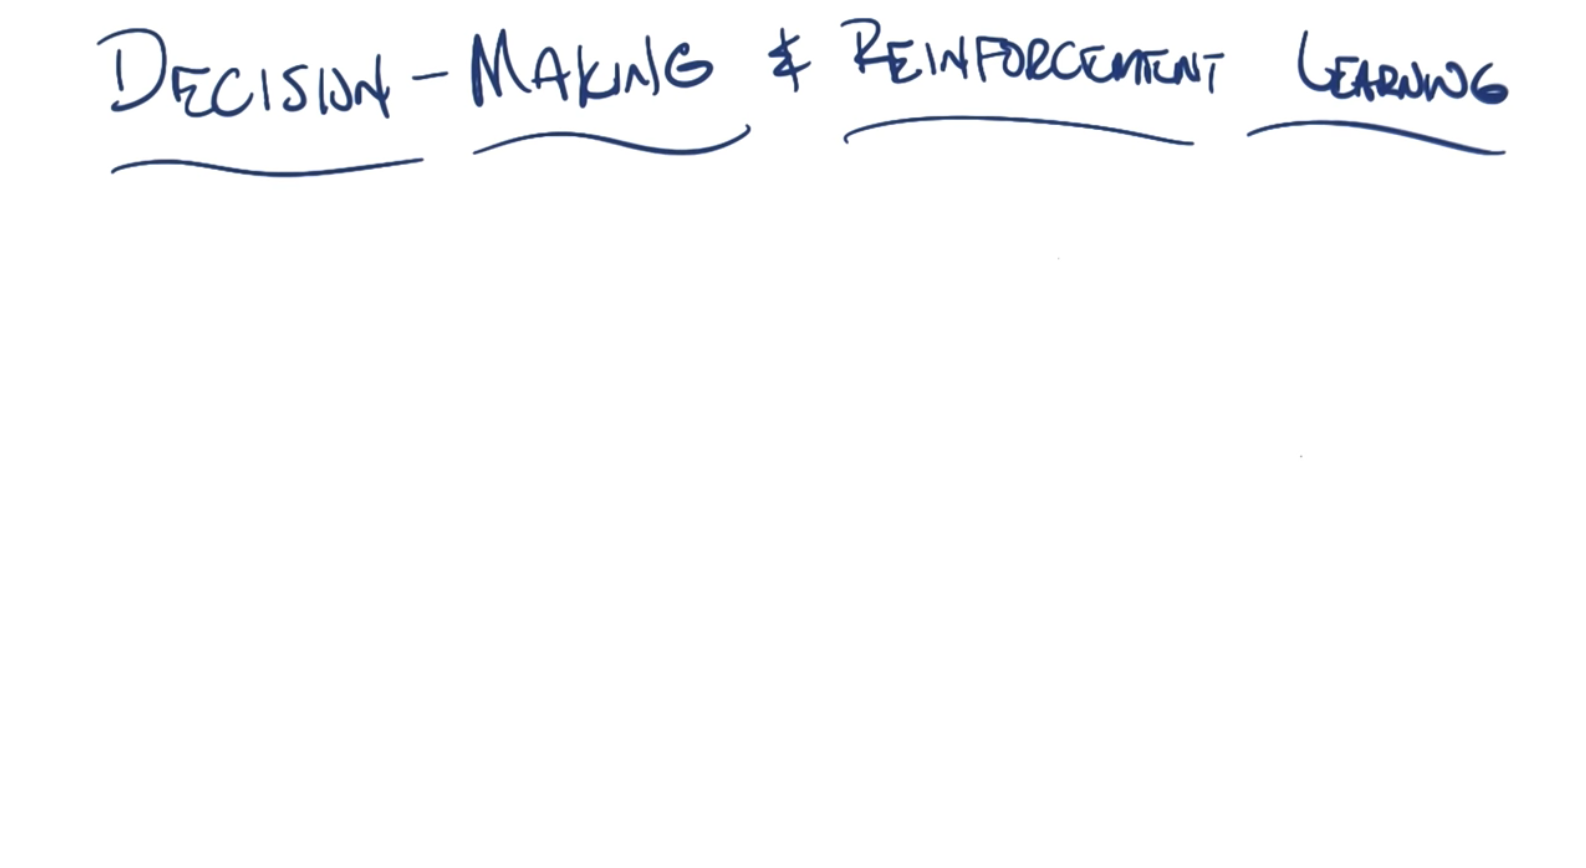 DECISION-MAKING & REINFORCEMENT LEARNING